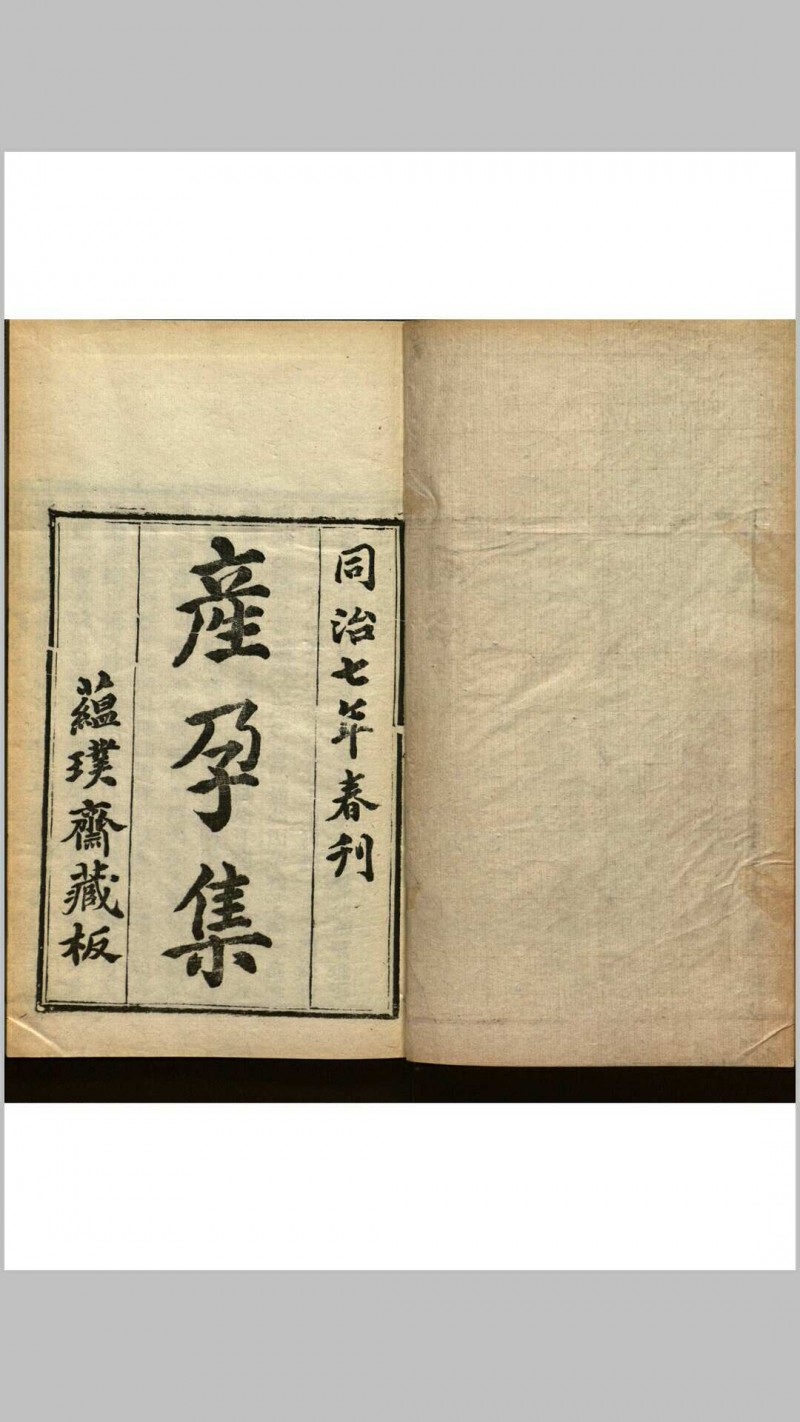 同治七年春刊
產孕集
蘊璞齋藏板